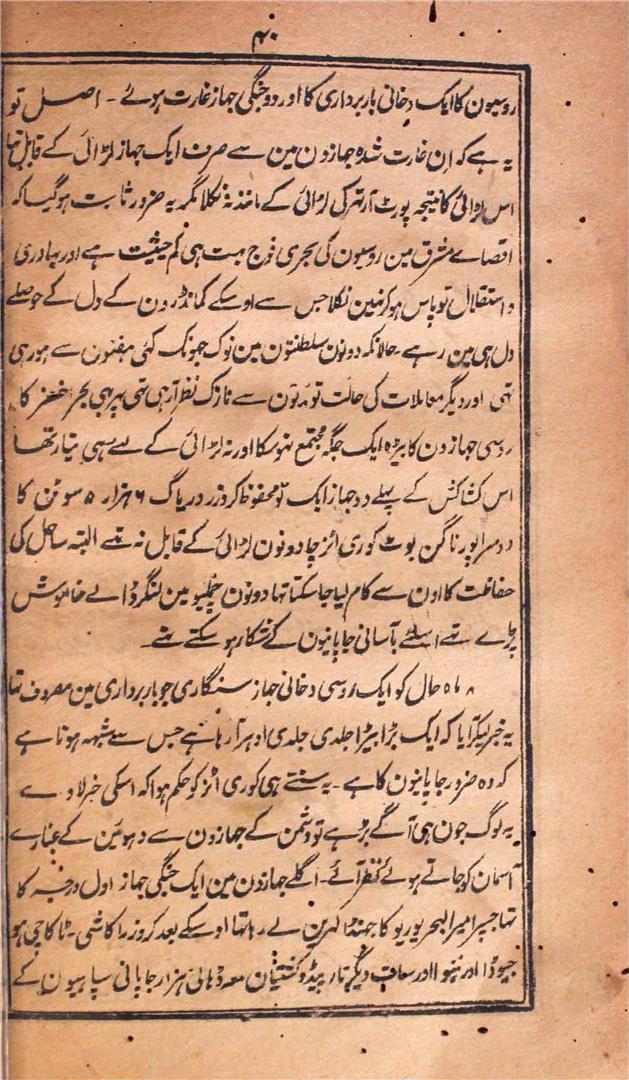 ۴۰
روسیون کا ایک دخانی باربرداری کا اور دو جنگی جہاز غارت ہوئے - اصل تو
یہ ہے کہ ان غارت شدہ جہازون مین سے صرف ایک جہاز لڑائی کے قابل تھا
اس لڑائی کا نتیجہ پورٹ آرتھر کی لڑائی کے مانند نہ نکلا مگر یہ ضرور ثابت ہو گیا کہ
اقصاے مشرق مین روسیون کی بحری فوج بہت ہی کم حیثیت ہے اور بہادری
و استقلال تو پاس ہو کر نہین نکلا جس سے اوسکے کمانڈرون کے دل کے حوصلے
دل ہی مین رہے - حالانکہ دونون سلطنتون مین نوک جہونک کئی ہفتون سے ہو رہی
تہی اور دیگر معاملات کی حالت تو مدتون سے نازک نظر آ رہی تہی پہر بہی بحر اخضر کا
روسی جہازون کا بیڑہ ایک جگہ مجتمع نہوسکا اور نہ لڑائی کے لیے ہی تیار تھا
اس کشاکش کے پہلے دو جہاز ایک تو محفوظ کروزر دریاگ ۶ ہزار ۵ سو ٹن کا
دوسرا پورنا گن بوٹ کوری ائز چا دونون لڑائی کے قابل نہ تہے البتہ ساحل کی
حفاظت کا اون سے کام لیا جا سکتا تہا دونون چملپو مین لنگر ڈالے خاموش
پڑے تہے اسلئے بآسانی جاپانیون کے شکار ہو سکتے تہے -
۸ ماہ حال کو ایک روسی دخانی جہاز سنگاری جو باربرداری مین مصروف تہا
یہ خبر لیکر آیا کہ ایک بڑا بیڑا جلدی جلدی ادہر آ رہا ہے جس سے شبہہ ہوتا ہے
کہ وہ ضرور جاپانیون کا ہے - یہ سنتے ہی کوری ائز کو حکم ہوا کہ اسکی خبر لاوے
یہ لوگ جون ہی آگے بڑہے تو دشمن کے جہازون سے دہوئین کے غبارے
آسمان کو جاتے ہوئے نظر آئے - اگلے جہازون مین ایک جنگی جہاز اول درجہ کا
تہا جسپر امیر البحر یوریو کا جہنڈا لہرین لے رہا تھا اوسکے بعد کروزر اکاشی - ٹاکاچی ہو
جیوڈا اور نیٹوا اور سات دیگر تارپیڈو کشتیان معہ ڈہائی ہزار جاپانی سپاہیون کے